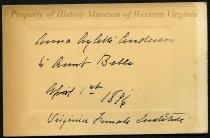 Property of History Museum of Western Virginia
Anna Aylett Anderson
to Aunt Belle
April 1st 1896
Virginia Female Institute